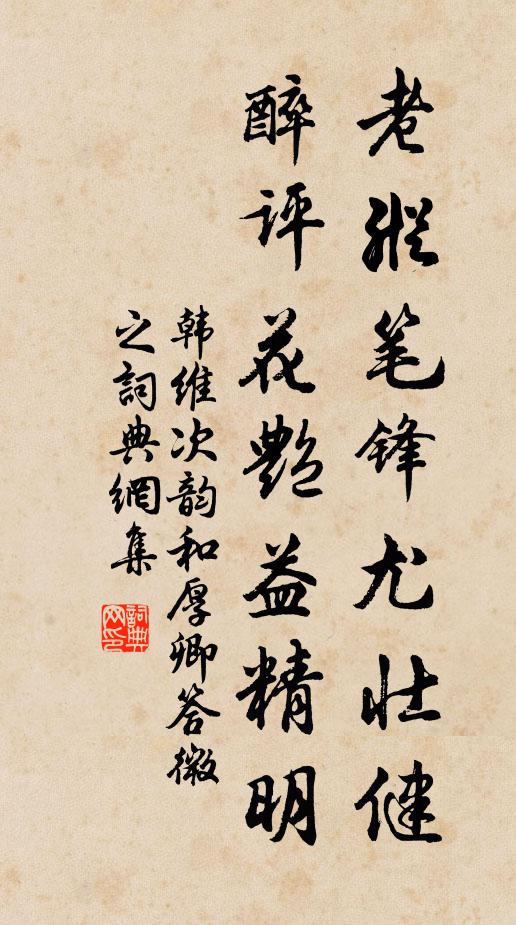 老縱笔锋尤壮健
醉评花艶益精明
韩维次韵和厚卿答微
之詞典網集
詞典
网印